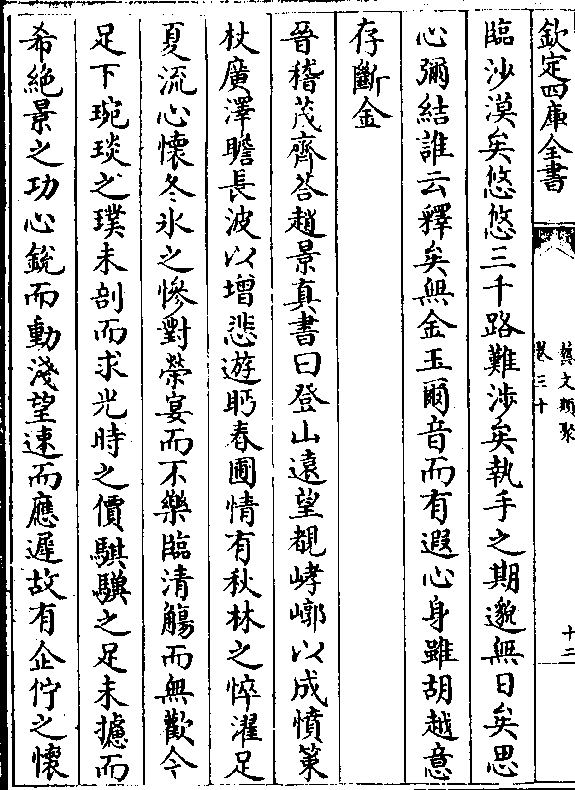 欽定四庫全書
藝文類聚
卷三十
十二
臨沙漠矣悠悠三千路難渉矣執手之期邈無日矣思
心彌結誰云釋矣無金玉爾音而有遐心身雖胡越意
存斷金
晉稽茂齊荅趙景真書曰登山逺望覩崤嶂以成憤策
杖廣澤瞻長波以増悲遊眄春圃情有秋林之悴濯足
夏流心懷冬氷之慘對榮宴而不樂臨清觴而無歡今
足下琬琰之璞未剖而求光時之價騏驥之足未攄而
希絶景之功心鋭而動淺望速而應遲故有企佇之懷